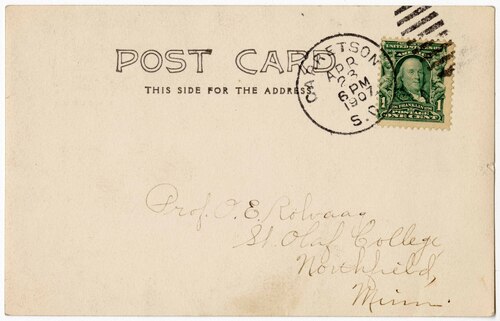 POST CARD
THIS SIDE FOR THE ADDRESS
GARRETSON
APR
23
6 PM
1907
S.D.
UNITED STATES OF AMERICA
FRANKLIN
1 POSTAGE 1
ONE CENT
Prof. O. E. Rolvaag
St. Olaf College
Northfield,
Minn.